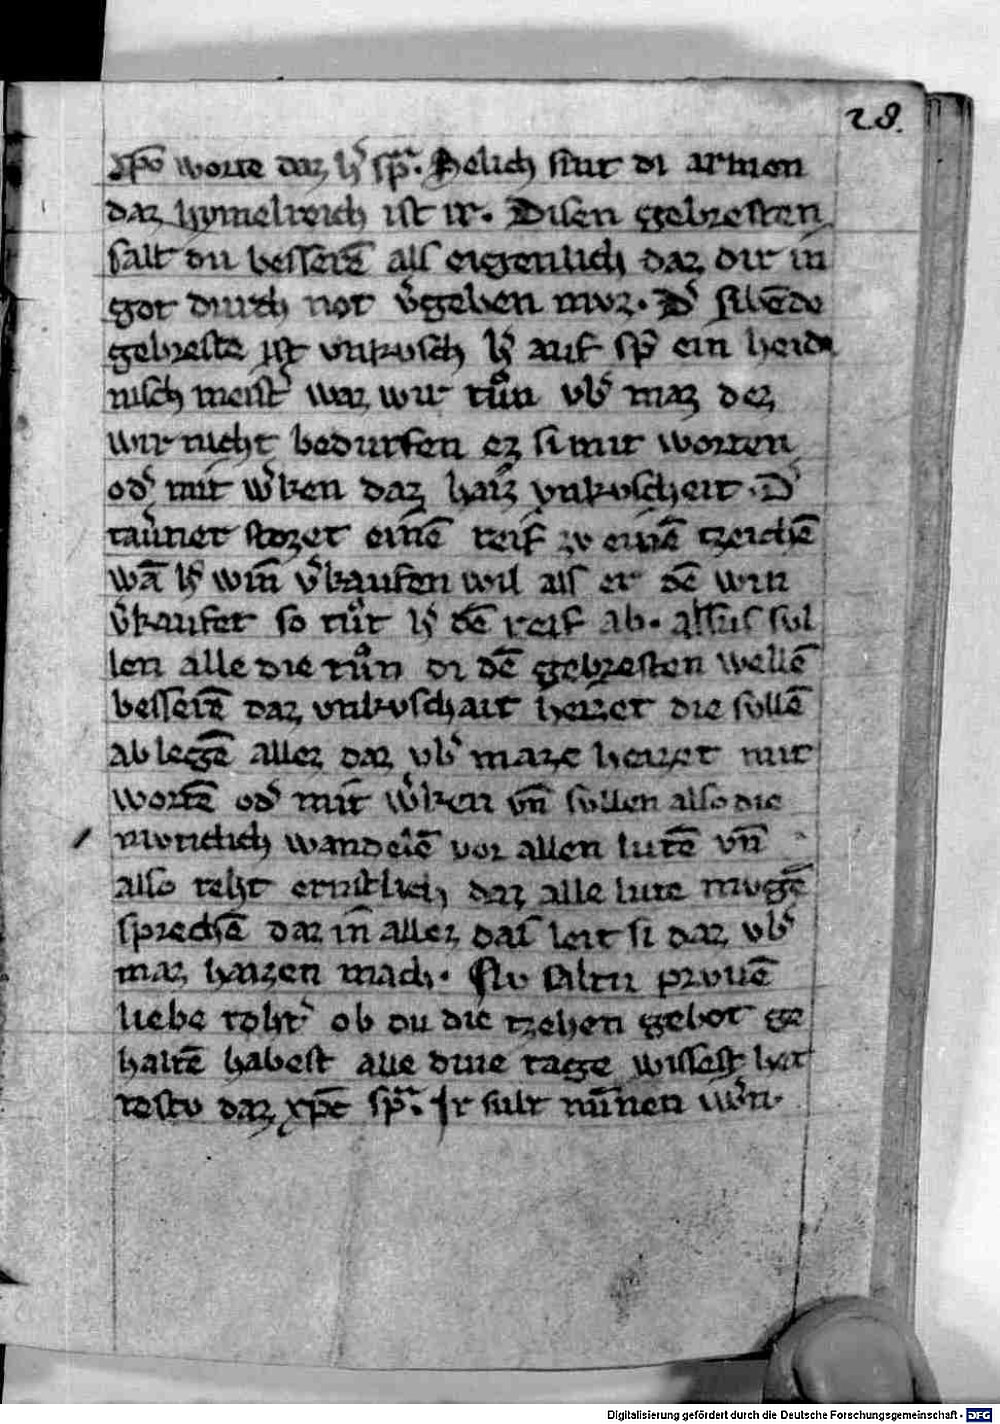 28.
xp̄o worte daz h̓ sp̄ͣ. Selich sint di armen
daz hymelreich ist ir. Disen gebresten
salt du besserē als eigenlich daz dir in
got durch not v̓geben mvz. D̓ sibēde
gebreste ist vnkvsch h̓ auf sp̄ ein heide
nisch meist̓ waz wir tůn vb̓ maz dez
wir nicht bedurfen ez si mit worten
od̓ mit w̓ken daz haiz̓ vnkvscheit. D̓
tau̓net stozet einē reif zv einē tzeichē
wā h̓ win̄ v̓kaufen wil als er dē win
v̓kaufet so tůt h̓ dē reif ab. alsus sul
len alle die tůn di dē gebresten wellē
besserē daz vnkvschait heizet die sullē
ab legē allez daz vb̓ maze heizet mit
wortē od̓ mit w̓ken vn̄ sullen also die
wandelē vor allen lutē vn̄
also reht ernstlich daz alle lute mvgē
sprechē daz in̄ allez daz leit si daz vb̓
maz haizen mach. Nv saltu prvuē
liebe toht̓ ob du die tzehen gebot ge
haltē habest alle dine tage wissest
daz xp̄c sp̄ͣ. Ir sult